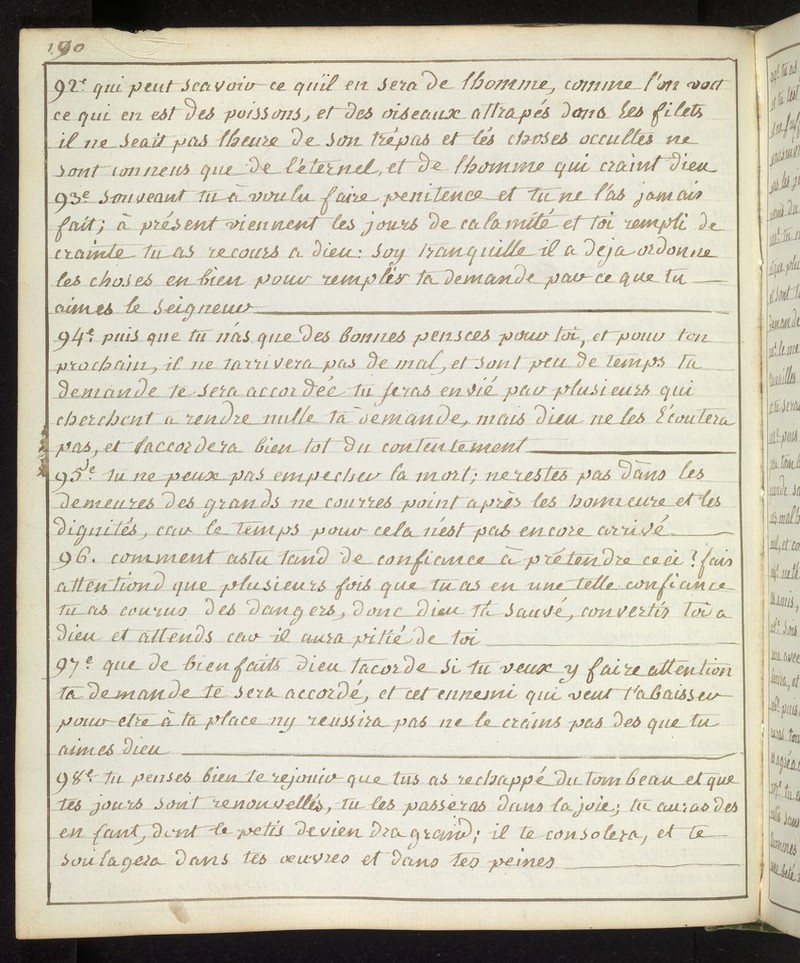 190
92e qui peut scavoir ce quil en sera de lhomme, comme l'on voit
ce qui en est des poissons, et des oiseaux attrapés dans ses filets
il ne seait pas lheure de son trépas et lés choses occultes ne
sont conneus que de l'éternel, et de lhomme qui craint dieu
93e souveant tu a voulu faire penitence et tu ne l'as jamais
fait; à présent viennent les jours de calamité et toi rempli de
crainte tu as recours a dieu: soy tranquille il a deja ordonne
les choses en bien pour remplir ta demande par ce que tu
aimes le seigneur
94e puis que tu n'as que des bonnes pensees pour toi, et pour ton
prochain, il ne tarrivera pas de mal, et sont peu de temps ta
demande te sera accordée tu seras envié par plusieurs qui
cherchent a rendre nulle ta demande, mais dieu ne les écoutera
pas, et taccordera bien tot du contentement
95e tu ne peux pas empecher la mort; ne restes pas dans les
demeures des grands ne courres point après les honneure et les
dignités, car le temps pour cela n'est pas encore arrivé
96. comment astu tand de confiance à prétendre ceci! fais
attentiond que plusieurs fois que tu as en une telle confiance
tu as courus des dangers, donc dieu ta sauvé, convertis toi a
dieu et attends car il aura pitié de toi
97e que de bienfaits dieu tacorde si tu veux y faire attention
ta demande te sera accordé, et cet ennemi qui veut t'abaisser
pour etre à ta place ny reussira pas ne le crains pas des que tu
aimes dieu
98e tu penses bien te rejouir que tus as rechappé du tombeau et que
tes jours sont renouvellés, tu les passeras dans la joie; tu auras des
enfant, dont le petis deviendra grand; il te consolera, et te
soulagera dans tes œuvres et dans tes peines